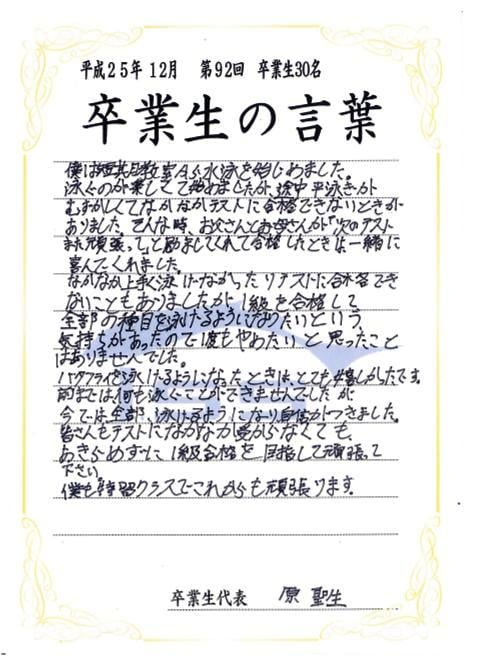 平成25年12月 第92回 卒業生30名
卒業生の言葉
僕は短期教室から水泳を始じめました。
泳ぐのが楽しくて始めましたが、途中平泳ぎが
むずかしくてなかなかテストに合格できないときが
ありました。そんな時、お父さんとお母さんが「次のテスト
また頑張って」と励ましてくれて合格したときは一緒に
喜んでくれました。
なかなか上手く泳げなかったりテストに合格でき
ないこともありましたが1級を合格して
全部の種目を泳げるようになりたいという
気持ちがあったので1度もやめたいと思ったこと
はありませんでした。
バタフライを泳げるようになったときは、とても嬉しかったです。
前までは何も泳ぐことができませんでしたが
今では全部、泳げるようになり自信がつきました。
皆さんもテストになかなか受からなくても、
あきらめずに1級合格を目指して頑張って
下さい。
僕も特習クラスでこれからも頑張ります。
卒業生代表 原 聖生